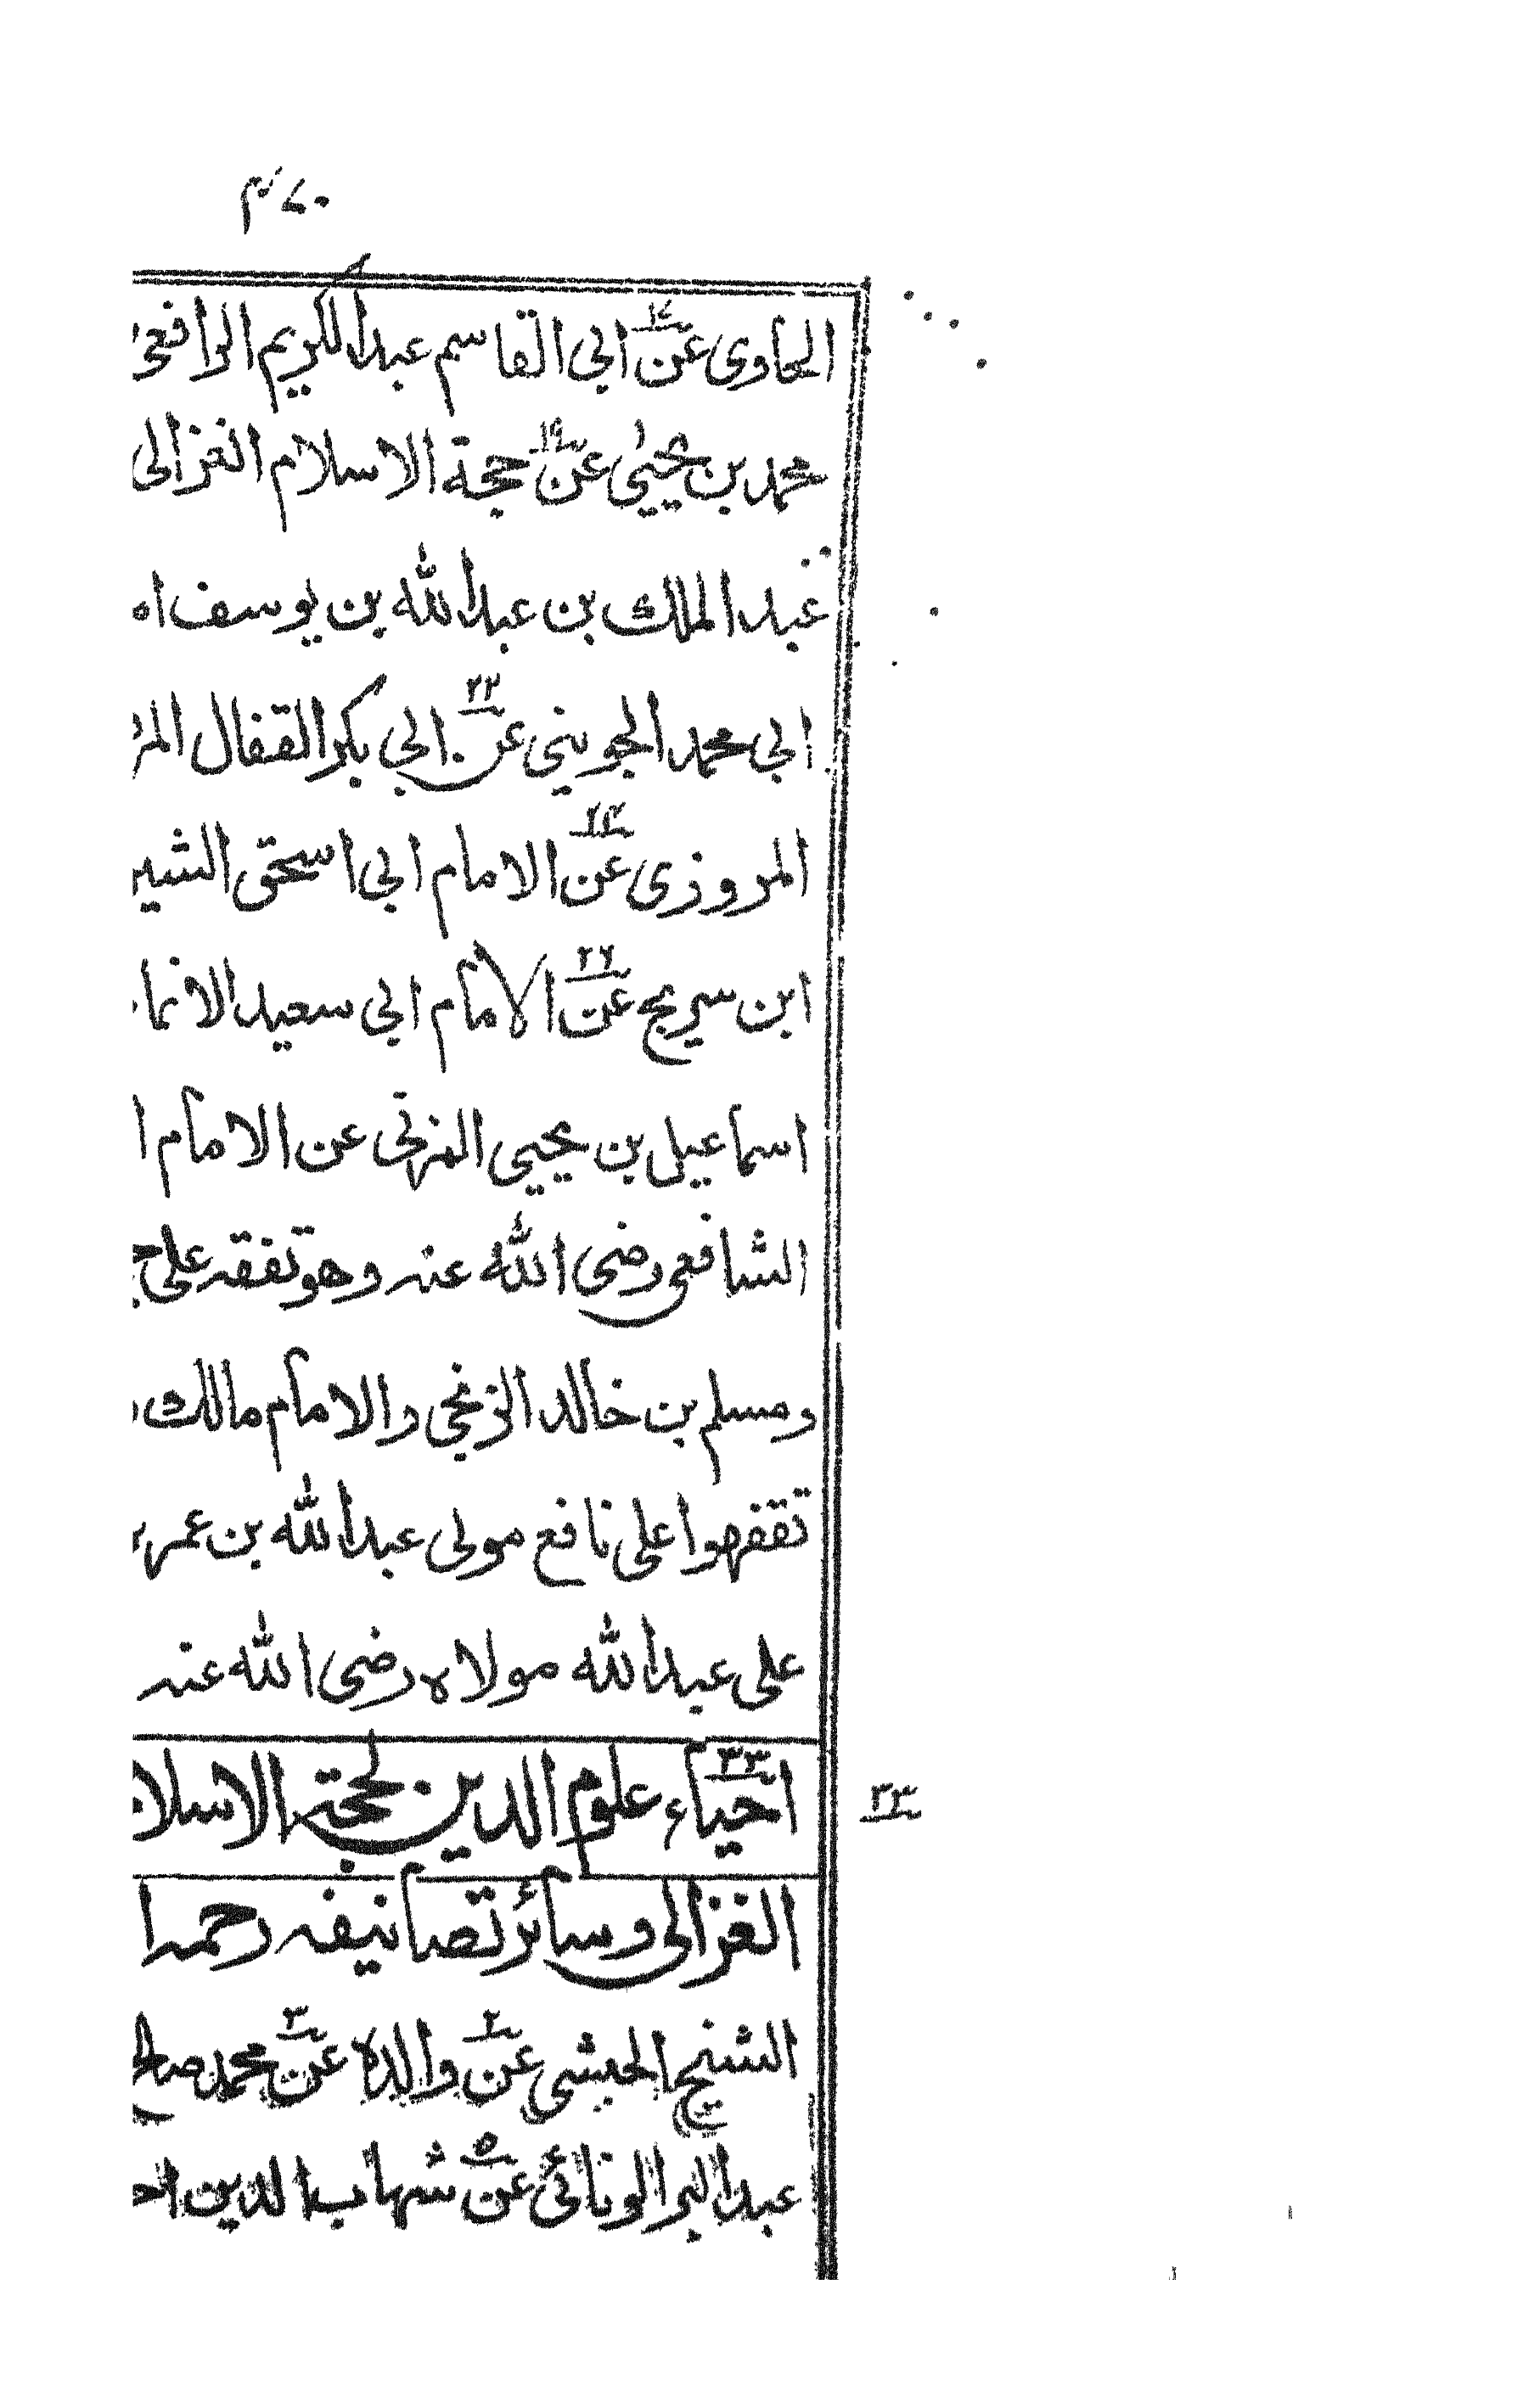 الحاوى عن ١٧ ابى القاسم عبد الكريم الرافعى
محمد بن يحيىٰ عن ١٩ حجة الاسلام الغزالى
عبد الملك بن عبد الله بن يوسف
ابى محمد الجوينى عن ٢٢ ابى بكر القفال
المروزى عن الامام ابى اسحق
ابن سريج عن ٢٦ الامام ابى سعيد
اسماعيل بن يحيى المزنى عن الامام
الشافعى رضى الله عنه وهو تفقه على
ومسلم بن خالد الزنجى والامام مالك
تفقهوا على نافع مولى عبد الله بن عمر
على عبد الله مولاه رضى الله عنه
٣٣ احياء علوم الدين لحجة الاسلام
٣٣
الغزالى وسائر تصانيفه رحمه
الشيخ الحبشى عن ٢ والده عن ٣ محمد صالح
عبد البر الونائى عن ٥ شهاب الدين